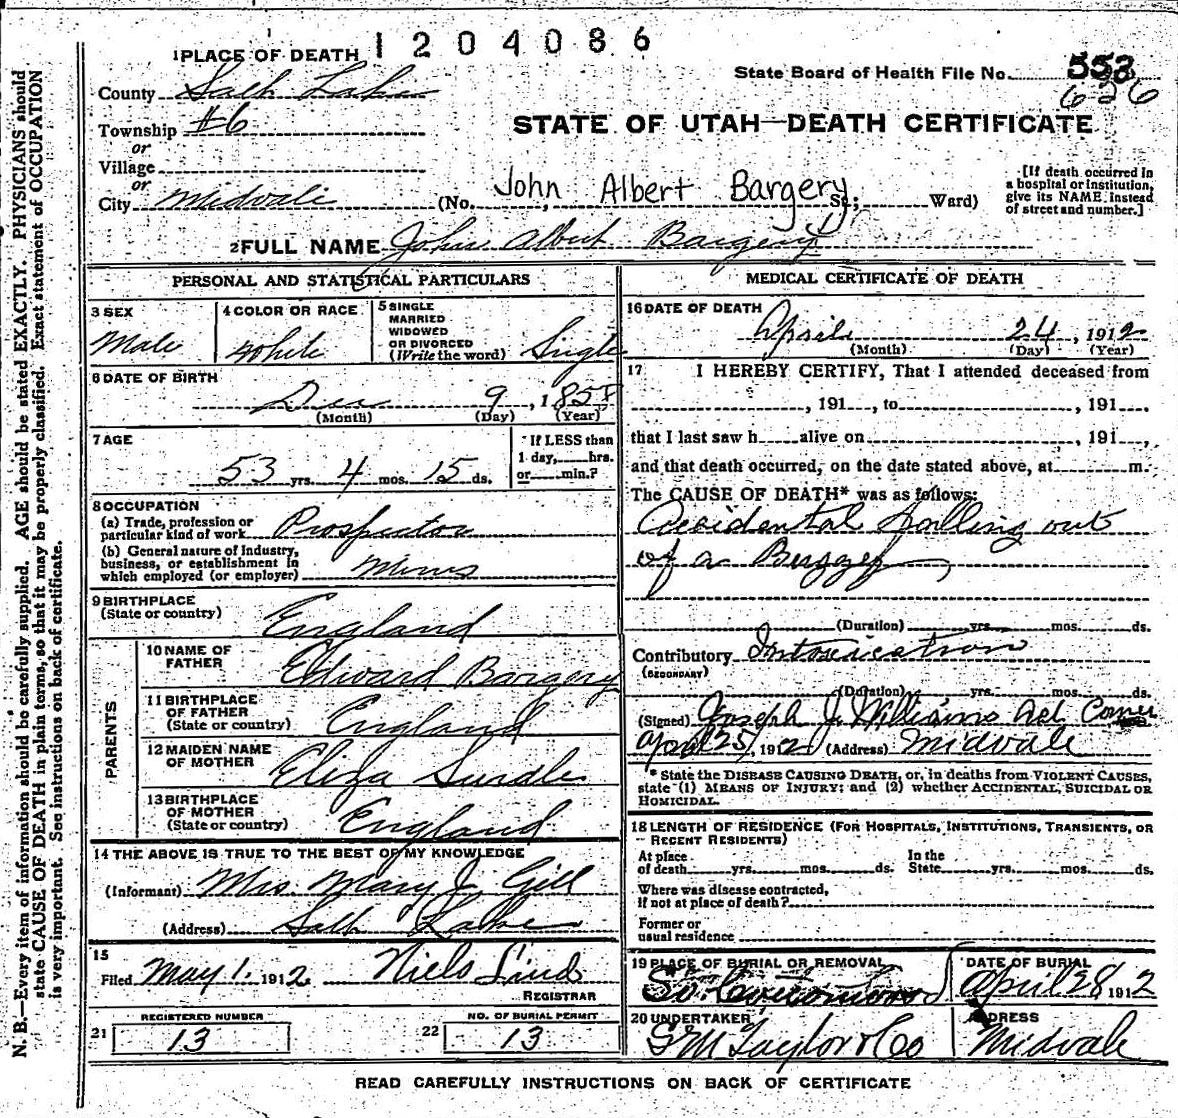 1204086
1 PLACE OF DEATH
State Board of Health File No. 553
626
County Salt Lake
Township #6
or
Village
or
City Midvale
STATE OF UTAH—DEATH CERTIFICATE
(No. John Albert Bargery St; Ward)
[If death occurred in
a hospital or institution,
give its NAME instead
of street and number.]
2 FULL NAME John Albert Bargery
PERSONAL AND STATISTICAL PARTICULARS
3 SEX
Male
4 COLOR OR RACE
White
5 SINGLE
MARRIED
WIDOWED
OR DIVORCED
(Write the word) Single
6 DATE OF BIRTH
Dec 9, 1858
(Month) (Day) (Year)
7 AGE
53 yrs. 4 mos. 15 ds.
If LESS than
1 day, hrs.
or min.?
8 OCCUPATION
(a) Trade, profession or
particular kind of work Prospector
(b) General nature of Industry,
business, or establishment in
which employed (or employer) Mines
9 BIRTHPLACE
(State or country) England
PARENTS
10 NAME OF
FATHER Edward Bargery
11 BIRTHPLACE
OF FATHER
(State or country) England
12 MAIDEN NAME
OF MOTHER Eliza
13 BIRTHPLACE
OF MOTHER
(State or country) England
14 THE ABOVE IS TRUE TO THE BEST OF MY KNOWLEDGE
(Informant) Mrs. Mary J. Gill
(Address) Salt Lake
15
Filed May 1. 1912. Niels Lind
REGISTRAR
21 REGISTERED NUMBER
13
22 NO. OF BURIAL PERMIT
13
MEDICAL CERTIFICATE OF DEATH
16 DATE OF DEATH
April 24, 1912
(Month) (Day) (Year)
17 I HEREBY CERTIFY, That I attended deceased from
, 191 , to , 191 ,
that I last saw h alive on , 191 ,
and that death occurred, on the date stated above, at m.
The CAUSE OF DEATH* was as follows:
Accidental Falling out
of a Buggy
(Duration) yrs. mos. ds.
Contributory Intoxication
(SECONDARY)
(Duration) yrs. mos. ds.
(Signed) Joseph J. Williams Act Corner
April 25, 1912 (Address) Midvale
* State the DISEASE CAUSING DEATH, or, in deaths from VIOLENT CAUSES,
state (1) MEANS OF INJURY; and (2) whether ACCIDENTAL, SUICIDAL OR
HOMICIDAL.
18 LENGTH OF RESIDENCE (FOR HOSPITALS, INSTITUTIONS, TRANSIENTS, OR
RECENT RESIDENTS)
At place
of death yrs. mos. ds.
In the
State yrs. mos. ds.
Where was disease contracted,
if not at place of death?
Former or
usual residence
19 PLACE OF BURIAL OR REMOVAL
So. Cottonwood
DATE OF BURIAL
April 28, 1912
20 UNDERTAKER
Taylor & Co
ADDRESS
Midvale
READ CAREFULLY INSTRUCTIONS ON BACK OF CERTIFICATE
N. B.—Every item of information should be carefully supplied. AGE should be stated EXACTLY. PHYSICIANS should
state CAUSE OF DEATH in plain terms, so that it may be properly classified. Exact statement of OCCUPATION
is very important. See instructions on back of certificate.